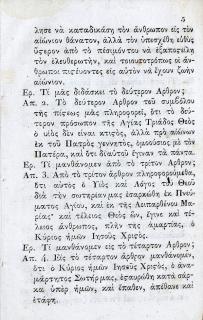 5
λησε νὰ καταδικάσῃ τὸν ἄνθρωπον εἰς τὸν
αἰώνιον θάνατον, ἀλλὰ τὸν ὑπεσχέθη εὐθὺς
ὕςερον ἀπὸ τὸ πέσιμόντου νὰ ἐξαποςείλῃ
τὸν ἐλευθερωτὴν, καὶ τοιουτοτρόπως οἱ ἄν-
θρωποι πιςεύοντες εἰς αὐτὸν νὰ ἔχουν ζωὴν
αἰώνιον.
Ερ. Τί μᾶς διδάσκει τὸ δεύτερον Αρθρον;
Απ. 2. Τὸ δεύτερον Αρθρον τοῦ συμβόλου
τῆς πίςεως μᾶς πληροφορεῖ, ὅτι τὸ δεύ-
τερον πρόσωπον τῆς Αγίας Τριάδος Θεὸς
ὁ υἱὸς δὲν εἶναι κτιςὸς, ἀλλὰ πρὸ αἰώνων
ἐκ τοῦ Πατρὸς γεννητὸς, ὁμοούσιος μὲ τὸν
Πατέρα, καὶ ὅτι δι'αὐτοῦ ἔγιναν τὰ πάντα.
Ερ. Τί μανθάνομεν ἀπὸ τὸ τρίτον Αρθρον;
Απ. 3. Απὸ τὸ τρίτον ἄρθρον πληροφορούμεθα,
ὅτι αὐτὸς ὁ Υἱὸς καὶ Λόγος τοῦ Θεοῦ
διὰ τὴν σωτηρίαν μας ἐσαρκώθη ἐκ Πνεύ-
ματος Αγίου, καὶ ἐκ τῆς Αειπαρθένου Μα-
ρίας· καὶ τέλειος Θεὸς ὢν, ἔγινε καὶ τέ-
λειος ἄνθρωπος, πλὴν τῆς ἁμαρτίας, ὁ
Κύριος ἡμῶν Ιησοῦς Χριςός.
Ερ. Τί μανθάνομεν εἰς τὸ τέταρτον Αρθρον;
Απ. 4. Εἰς τὸ τέταρτον ἄρθρον μανθάνομεν,
ὅτι ὁ Κύριος ἡμῶν Ιησοῦς Χριςὸς, ὁ ἀνα-
μάρτητος Σωτήρμας, ἐςαυρώθη κατὰ σάρ-
κα ὑπὲρ ἡμῶν, καὶ ἔπαθεν, ἀπέθανε καὶ
ἐτάφη.